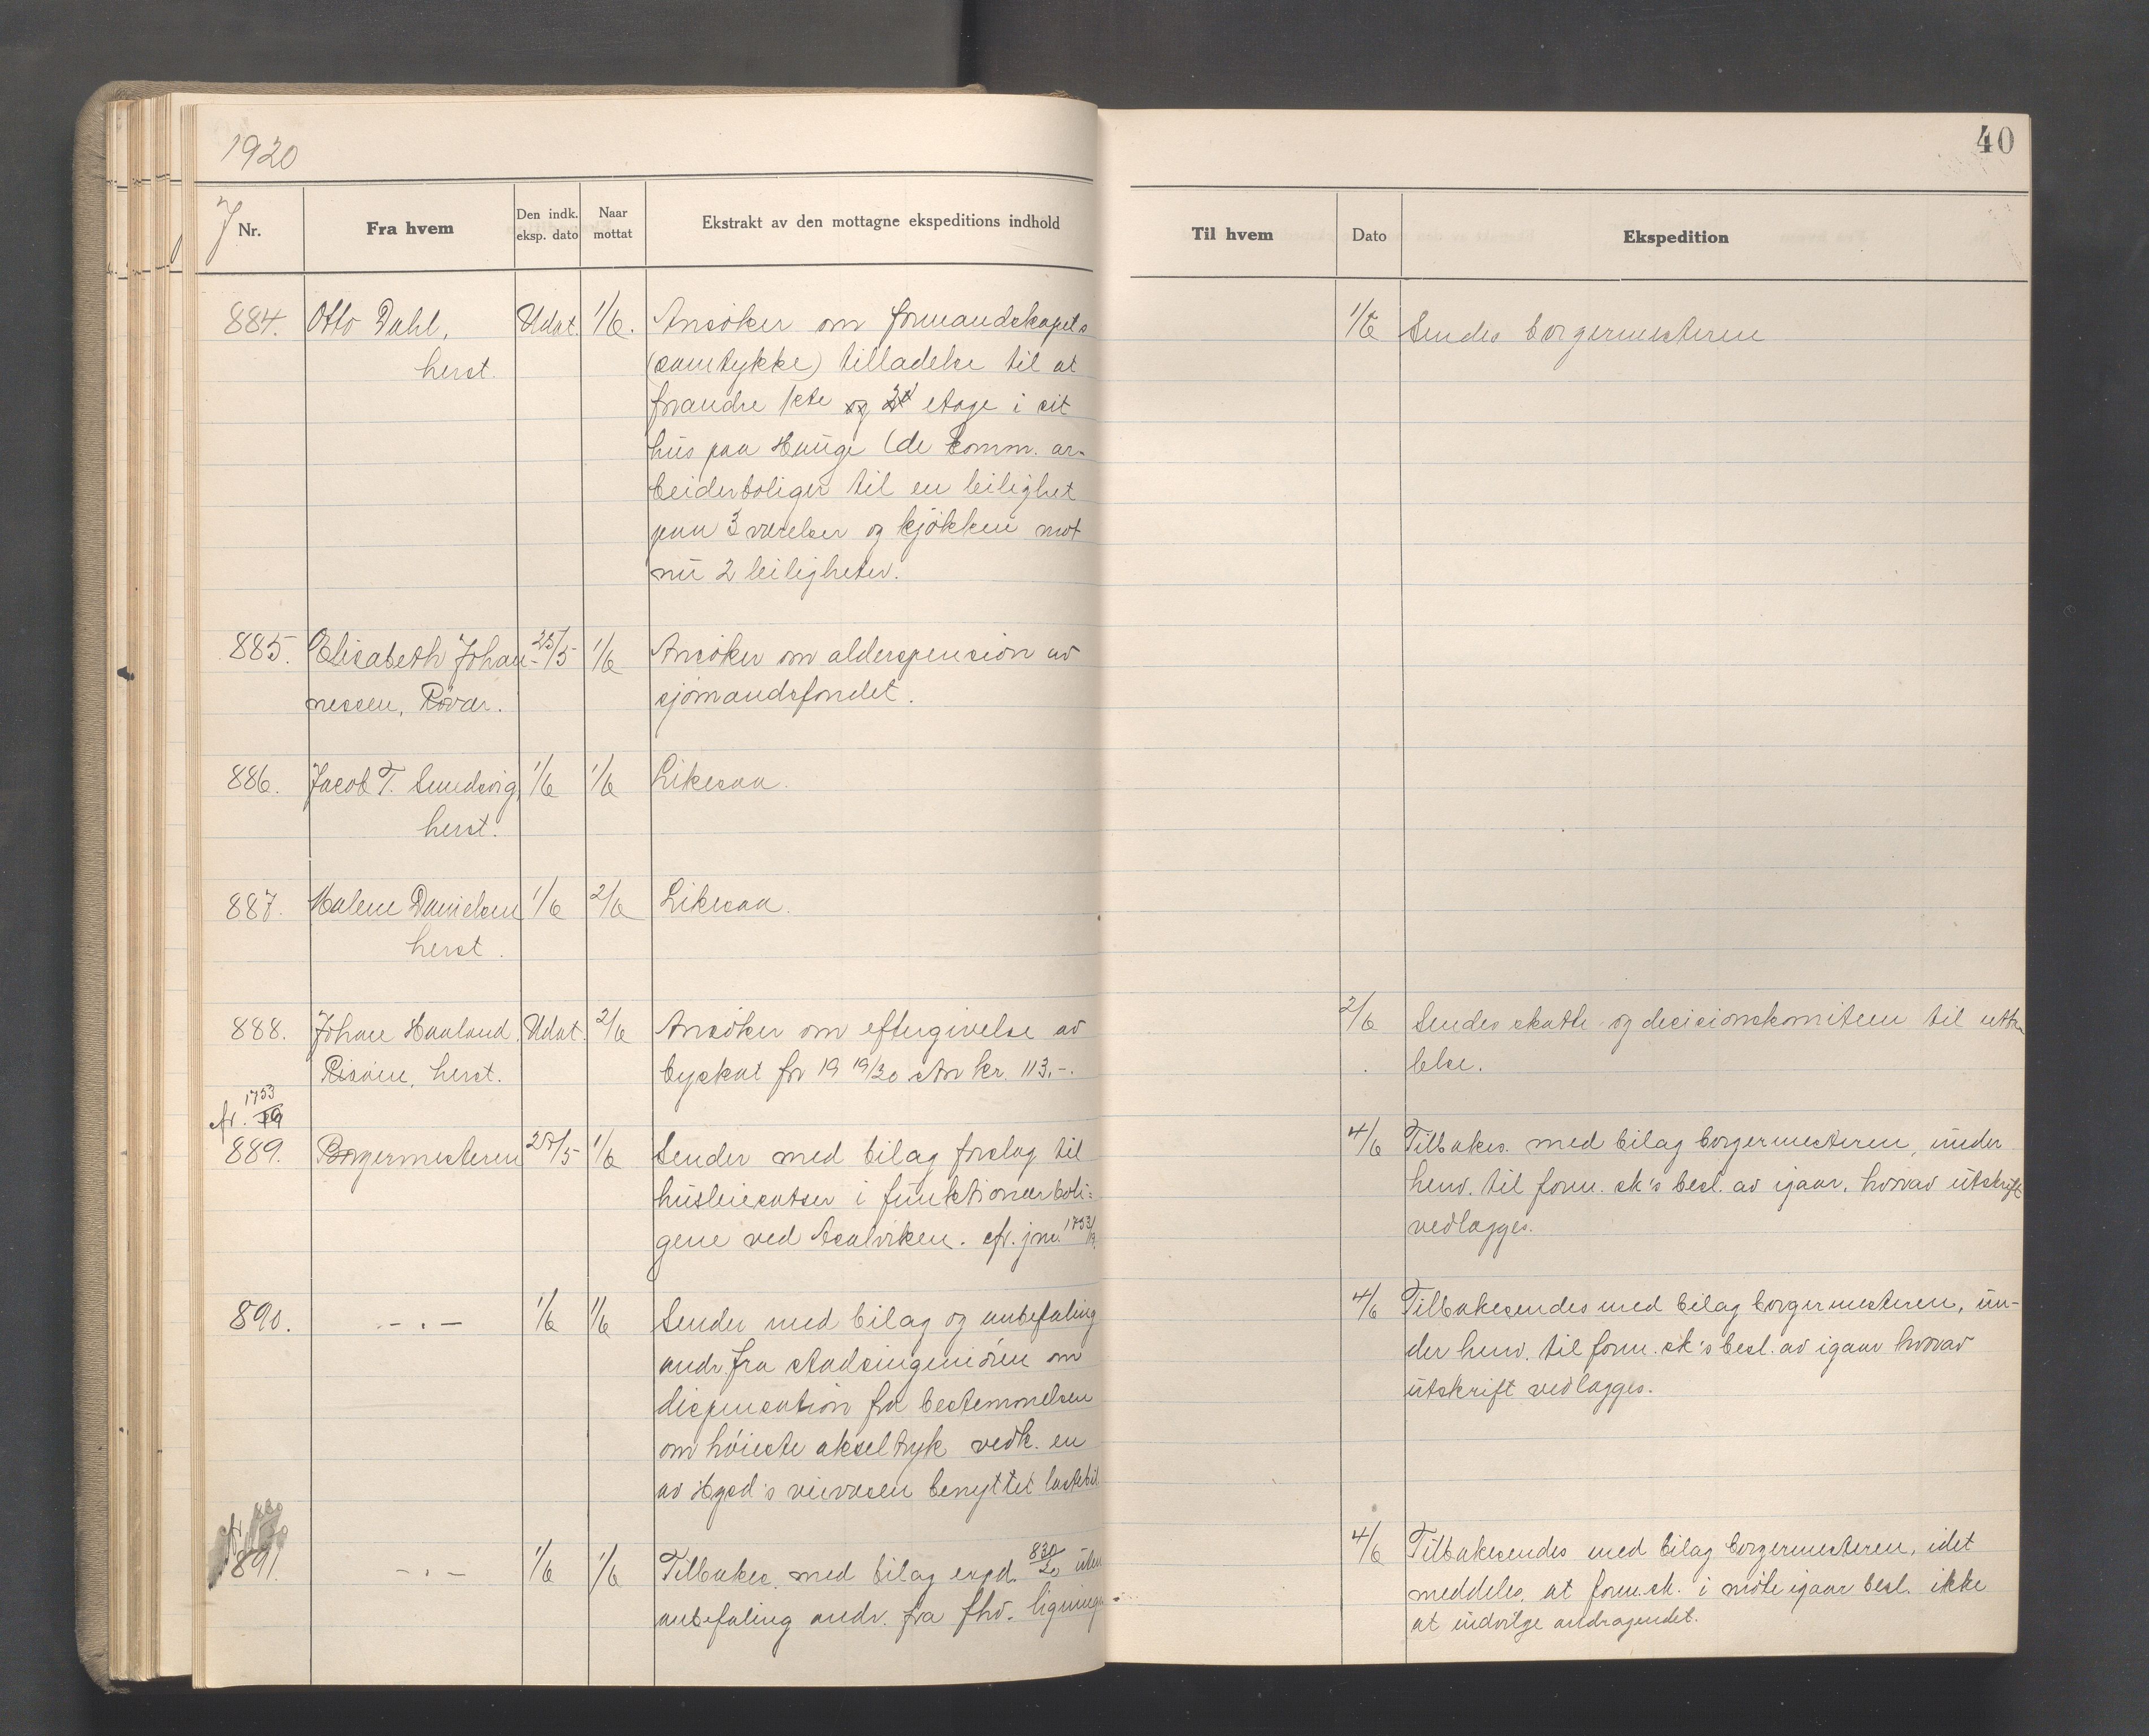 1920
40
J
Nr.
Fra hvem
Den indk. eksp. dato
Naar mottat
Ekstrakt av den mottagne ekspeditions indhold
Til hvem
Dato
Ekspedition
884. Otto Dahl, Udat. 1/6. Ansöker om formandskapets 1/6 Sendes borgermesteren
herst. (samtykke) tilladelse til at
forandre 1ste og 2 etage i sit
hus paa Hauge (de komm. ar-
beiderboliger til en leilighet
paa 3 værelser og kjökken mot
nu 2 leiligheter.
885. Elisabeth Johan- 25/5 1/6 Ansöker om alderspension av
nessen, Rövær. sjömandsfondet.
886. Jacob T. Sundsvig, 1/6 1/6 Likesaa.
herst.
887. Malene Danielsen 1/6 2/6 Likesaa.
herst.
888. Johan Haaland. Udat. 2/6 Ansöker om eftergivelse av 2/6 Sendes skatte og decisionskomiteen til utta
Risöen, herst. byskat for 19 19/20 stor kr. 113.-. lelse.
cfr. 1753/19
889. Borgermesteren 1/6 Sender med bilag forslag til 4/6 Tilbakes. med bilag borgermesteren, under
husleiesatser i funktionærboli- henv. til form. sk's besl. av igaar, hvorav utskrift
gene ved Skalviken. cfr. jnr. 1753/19. vedlægges.
890. - . - 1/6 1/6 Sender med bilag og anbefaling 4/6 Tilbakesendes med bilag borgermesteren, un-
andr. fra stadsingeniören om der henv. til form. sk's besl. av igaar hvorav
dispensation fra bestemmelsen utskrift vedlægges.
om höieste akseltryk vedk. en
av Hgsd's veivæsen benyttet lastebil
cfr.
891. - . - 1/6 1/6 Tilbakes. med bilag expd. 830/20 uten 4/6 Tilbakesendes med bilag borgermesteren, idet
anbefaling andr. fra fhv. lignings- meddeles, at form.sk. i möte igaar besl. ikke
at indvilge andragendet.